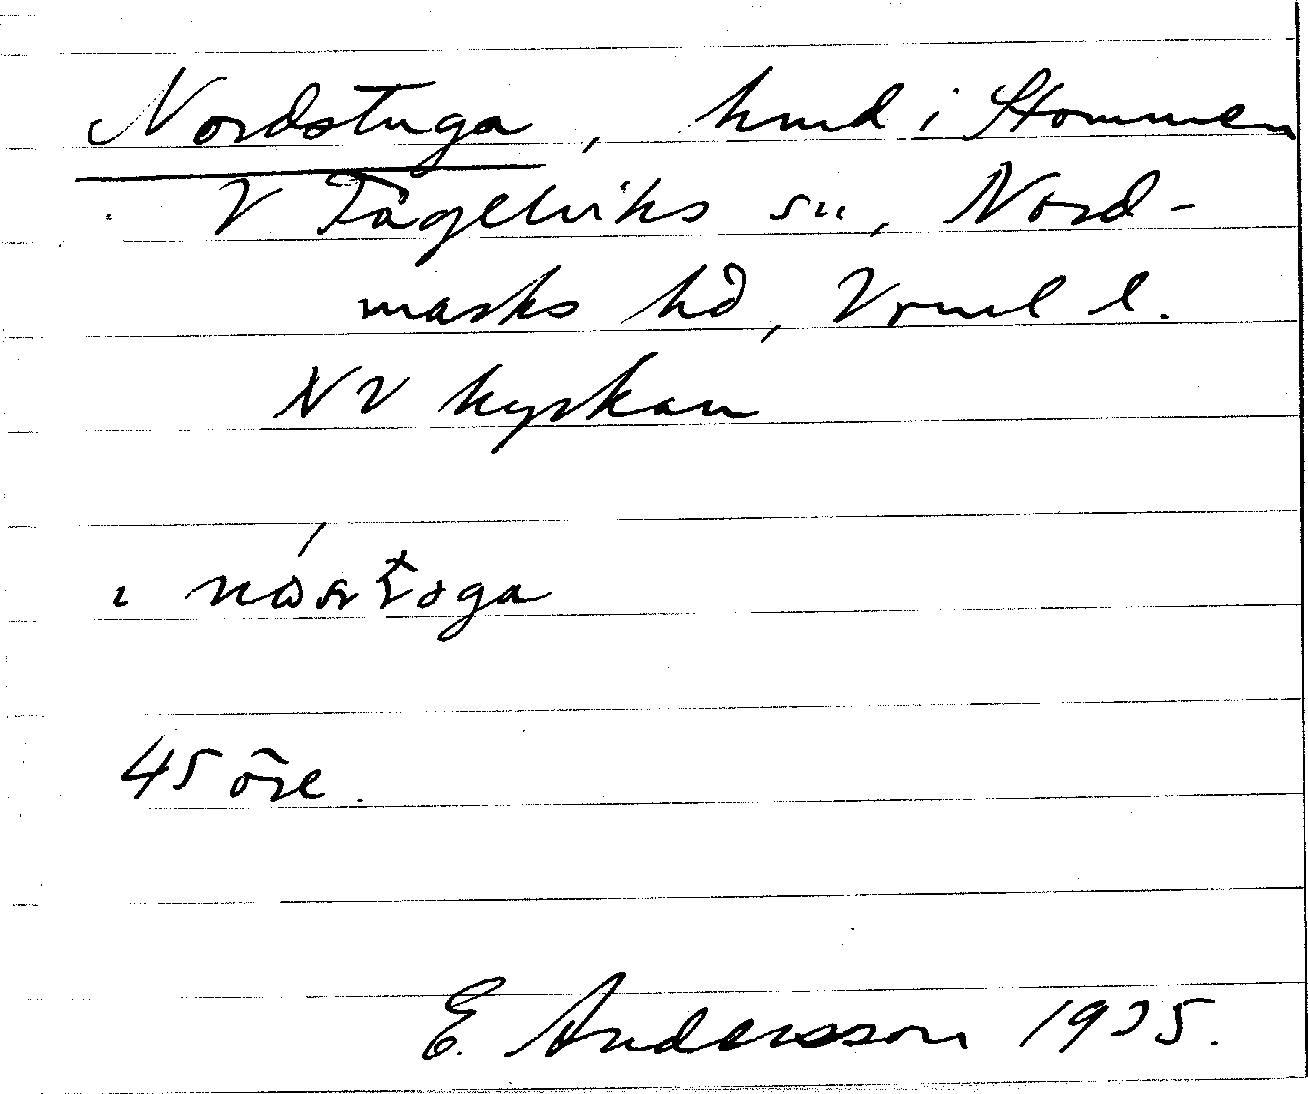 Nordstuga, hmd i Stommen
V Fågelviks sn, Nord-
marks hd, Vrml l.
NV kyrkan
45 öre.
E. Andersson 1935.